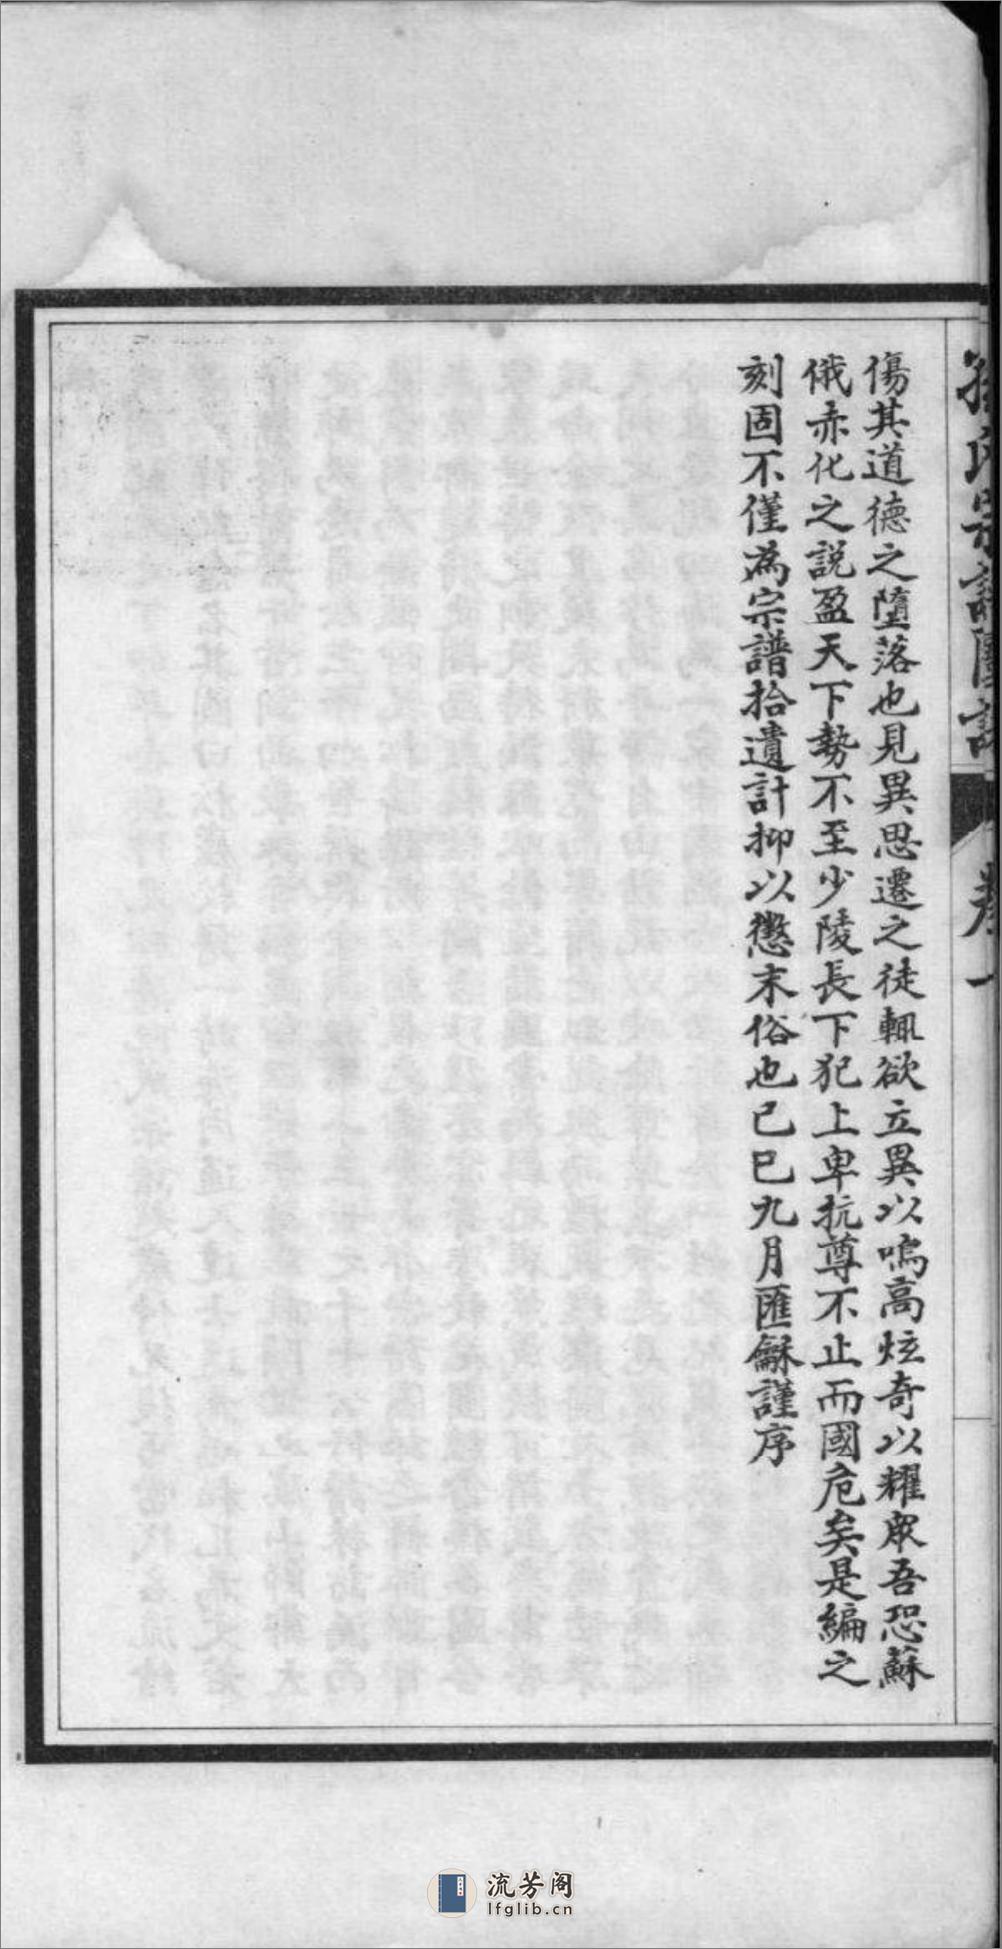 傷其道德之墮落也見異思遷之徒輒欲立異以鳴高炫奇以耀眾吾恐蘇
俄赤化之說盈天下勢不至少陵長下犯上卑抗尊不止而國危矣是編之
刻固不僅為宗譜拾遺計抑以懲末俗也己巳九月匯龢謹序
卷一
流芳阁
lfglib.cn